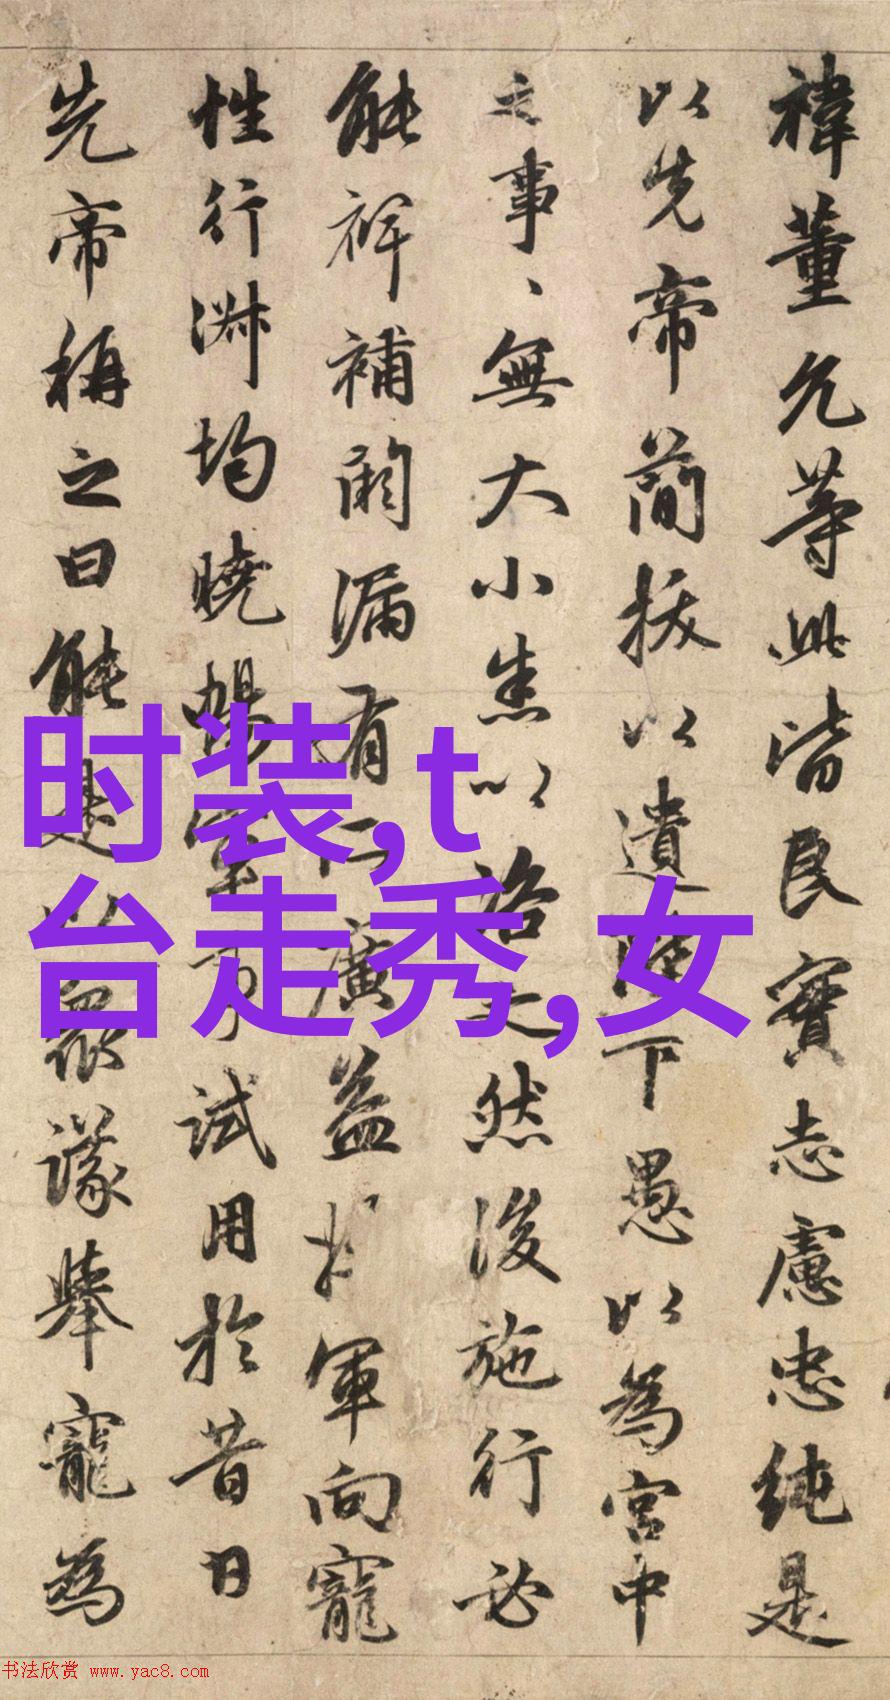 禕董允等此皆良實志慮忠純是
以先帝簡拔以遺陛下愚以為宮中
之事、無大小悉以諮之然後施行必
能裨補闕漏有仁廣益將軍向寵
性行淑均曉暢軍事試用於昔日
先帝稱之曰能是以眾議舉寵為
时装,t
台走秀,女
书法欣赏 www.yac8.com